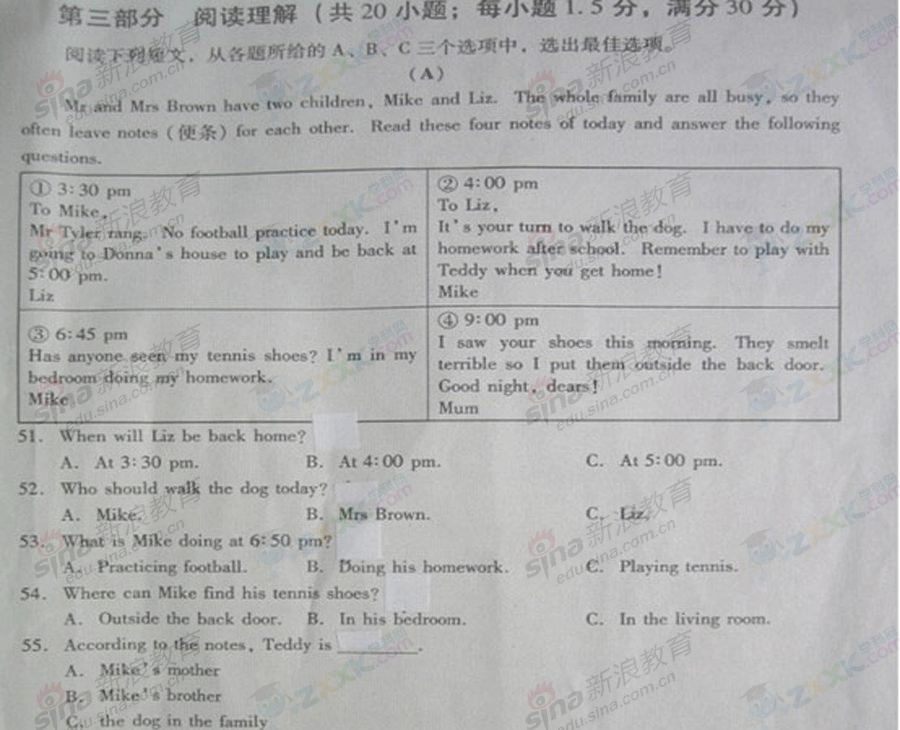 第三部分 阅读理解（共 20 小题；每小题 1.5 分，满分 30 分）
阅读下列短文，从各题所给的 A、B、C 三个选项中，选出最佳选项。
(A)
Mr and Mrs Brown have two children, Mike and Liz. The whole family are all busy, so they
often leave notes（便条）for each other. Read these four notes of today and answer the following
questions.
① 3:30 pm
To Mike,
Mr Tyler rang. No football practice today. I'm
going to Donna's house to play and be back at
5:00 pm.
Liz
② 4:00 pm
To Liz,
It's your turn to walk the dog. I have to do my
homework after school. Remember to play with
Teddy when you get home!
Mike
③ 6:45 pm
Has anyone seen my tennis shoes? I'm in my
bedroom doing my homework.
Mike
④ 9:00 pm
I saw your shoes this morning. They smelt
terrible so I put them outside the back door.
Good night, dears!
Mum
51. When will Liz be back home?
A. At 3:30 pm. B. At 4:00 pm. C. At 5:00 pm.
52. Who should walk the dog today?
A. Mike. B. Mrs Brown. C. Liz.
53. What is Mike doing at 6:50 pm?
A. Practicing football. B. Doing his homework. C. Playing tennis.
54. Where can Mike find his tennis shoes?
A. Outside the back door. B. In his bedroom. C. In the living room.
55. According to the notes, Teddy is ______.
A. Mike's mother
B. Mike's brother
C. the dog in the family
sina 新浪教育
edu.sina.com.cn